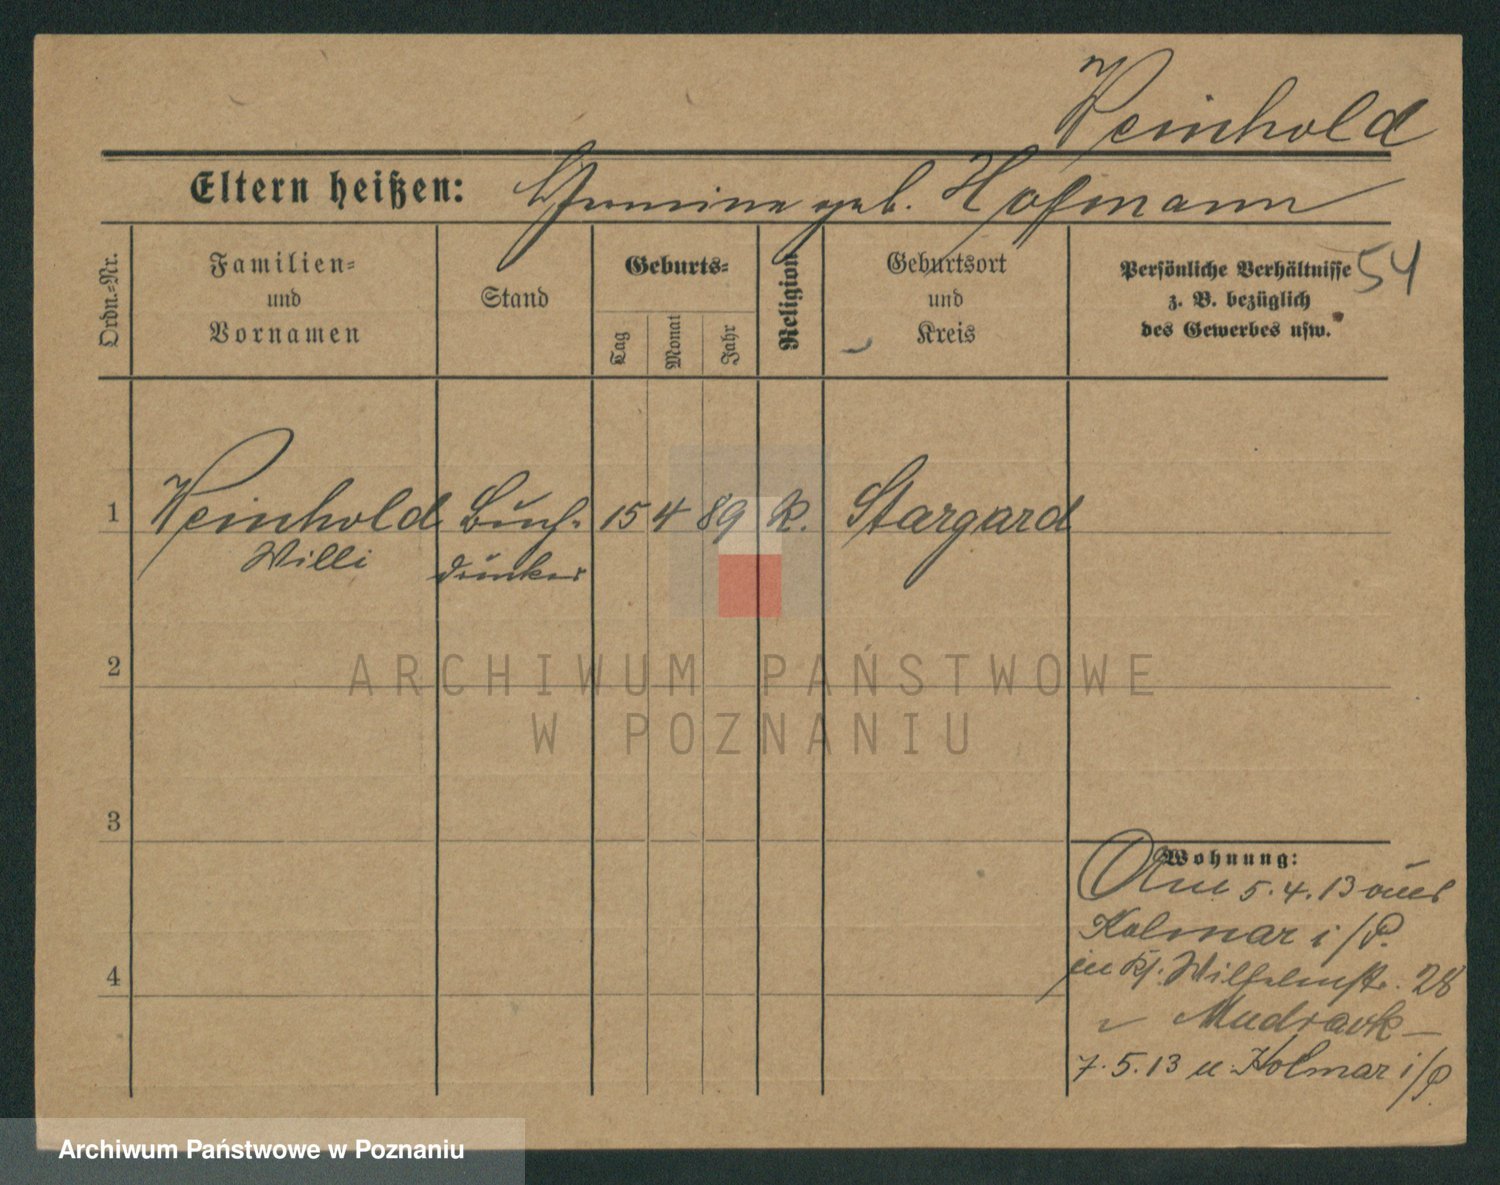 Reinhold
Eltern heißen: Hermine geb. Hofmann
Ordn.=Nr.
Familien=
und
Vornamen
Stand
Geburts=
Tag
Monat
Jahr
Religion
Geburtsort
und
Kreis
Persönliche Verhältnisse
z. B. bezüglich
des Gewerbes usw.
54
1 Reinhold Buch- 15 4 89 k. Stargard
Willi drucker
2
3
4
Wohnung:
5.4.13 aus
Kolmar i/P.
Wilhelmstr. 28
7.5.13 n. Kolmar i/P.
ARCHIWUM PAŃSTWOWE
W POZNANIU
Archiwum Państwowe w Poznaniu